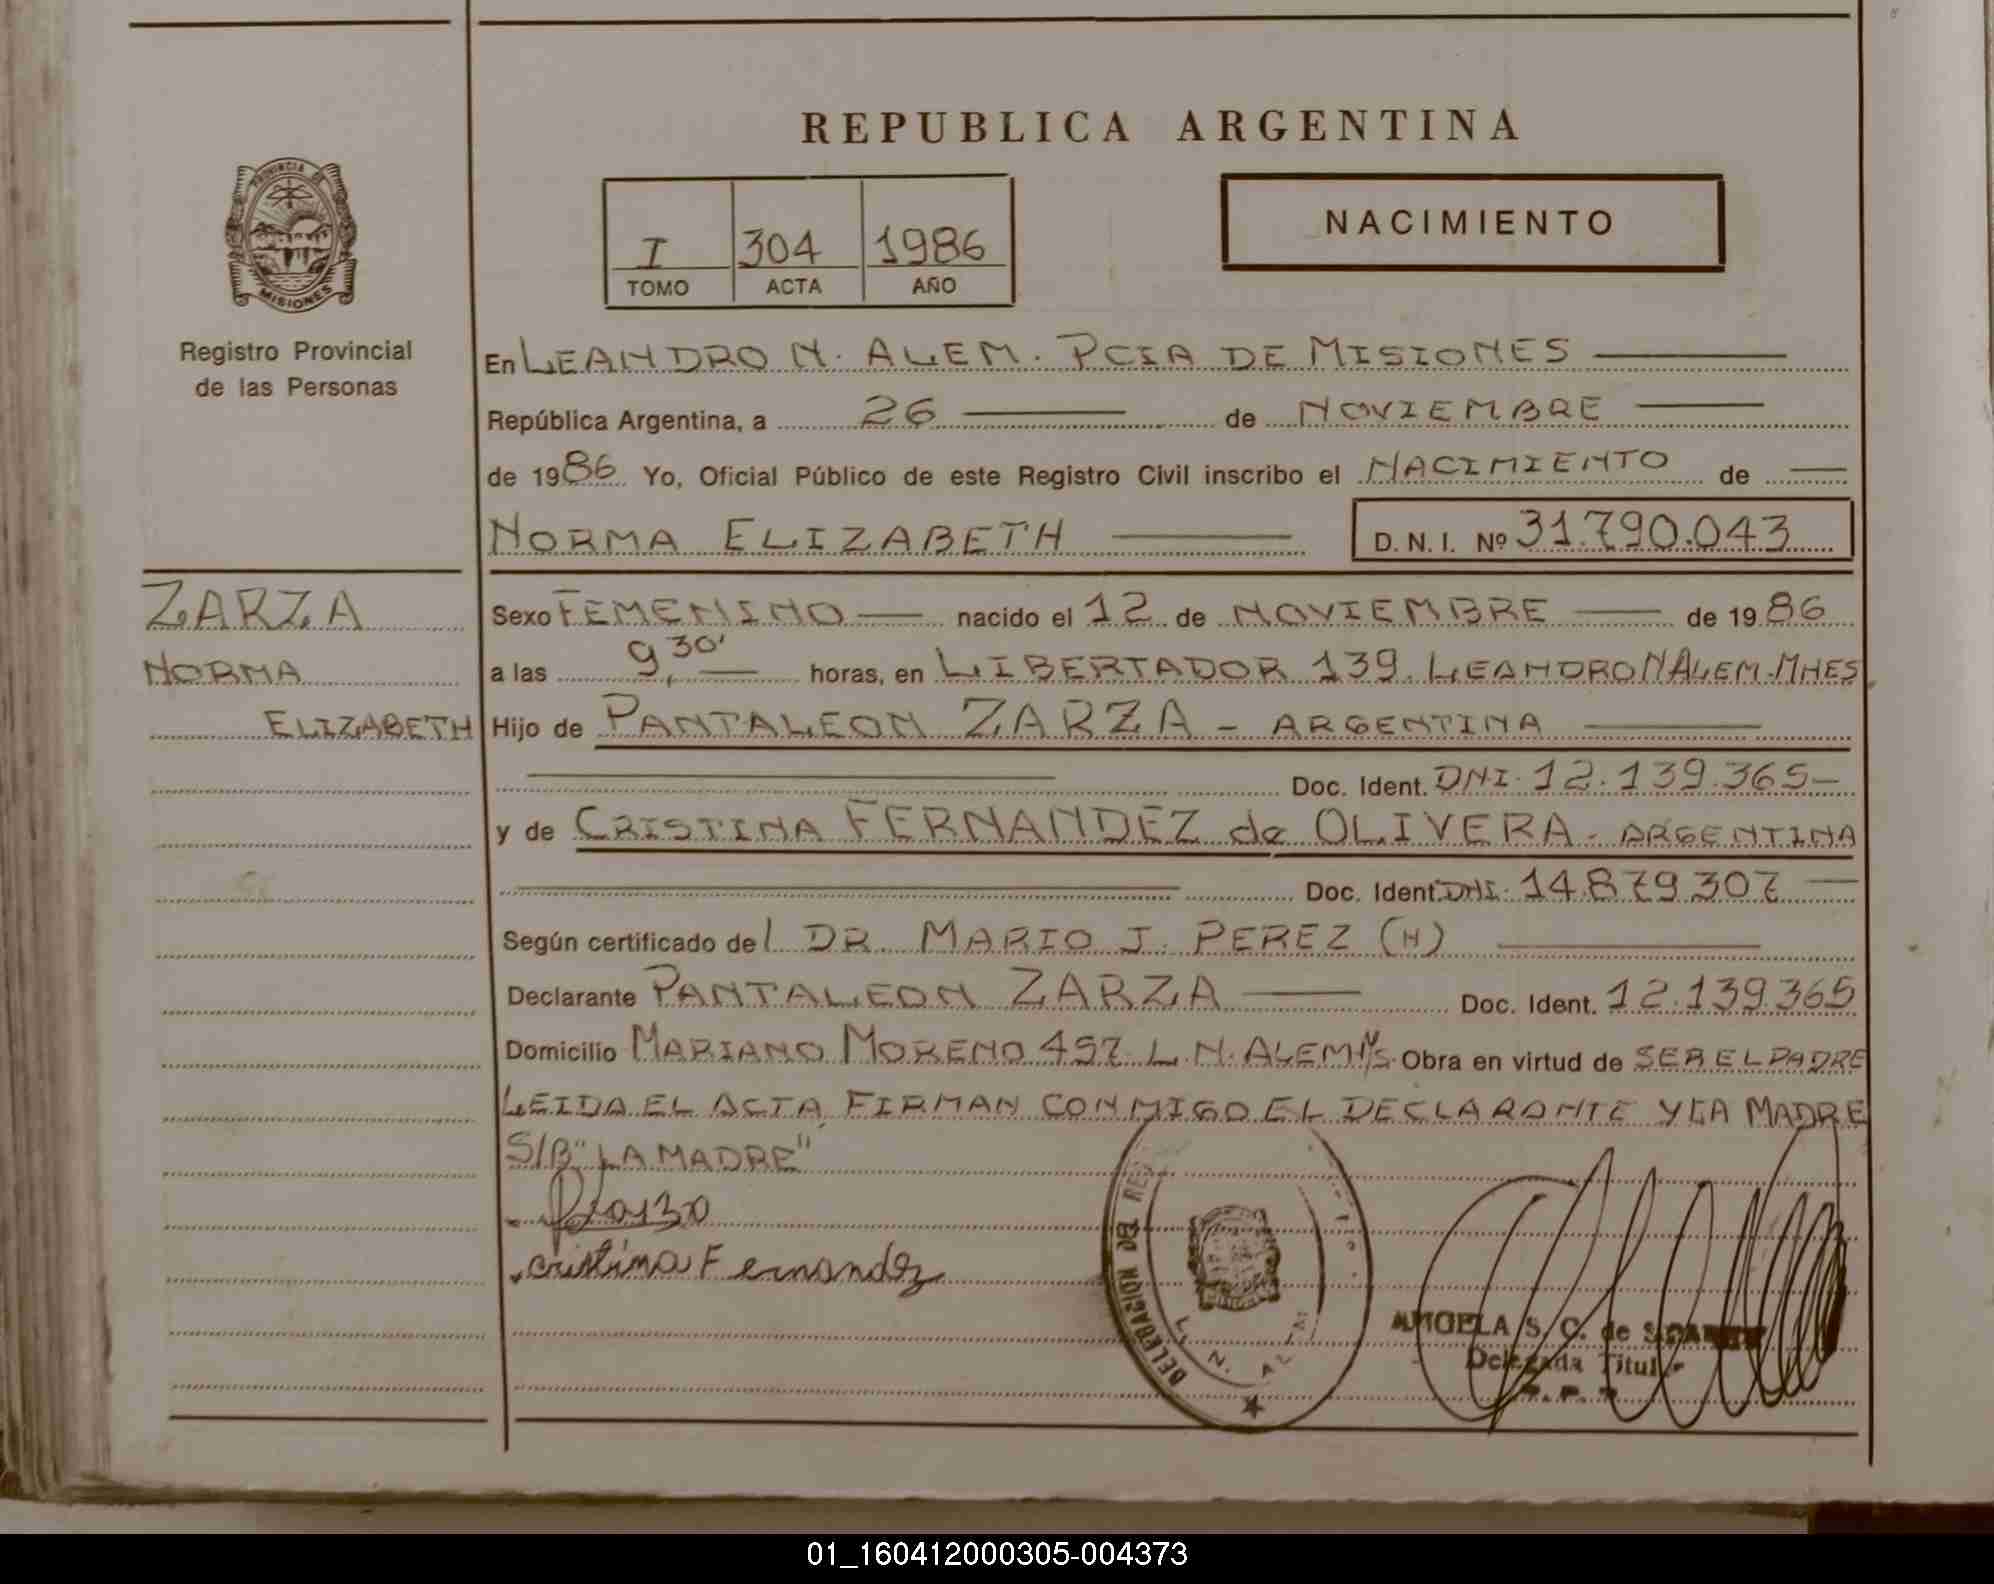 REPUBLICA ARGENTINA
PROVINCIA DE
MISIONES
Registro Provincial
de las Personas
I 304 1986
TOMO ACTA AÑO
NACIMIENTO
En LEANDRO N. ALEM. PCIA DE MISIONES
República Argentina, a 26 de NOVIEMBRE
de 1986 Yo, Oficial Público de este Registro Civil inscribo el NACIMIENTO de
NORMA ELIZABETH D.N.I. Nº 31.790.043
ZARZA
NORMA
ELIZABETH
Sexo FEMENINO nacido el 12 de NOVIEMBRE de 1986
a las 9,30' horas, en LIBERTADOR 139. LEANDRO N ALEM-MNES
Hijo de PANTALEON ZARZA - ARGENTINA
Doc. Ident. DNI. 12.139.365
y de CRISTINA FERNANDEZ de OLIVERA - ARGENTINA
Doc. Ident. DNI. 14.879.307
Según certificado del DR. MARIO J. PEREZ (H)
Declarante PANTALEON ZARZA Doc. Ident. 12.139.365
Domicilio MARIANO MORENO 457 L.N. ALEM Obra en virtud de SER EL PADRE
LEIDA EL ACTA, FIRMAN CONMIGO EL DECLARANTE Y LA MADRE
S/B "LA MADRE"
cristina Fernandez
DELEGACION DEL REG
L. N. ALEM
ANGELA S. C. de
Delegada Titular
01_160412000305-004373